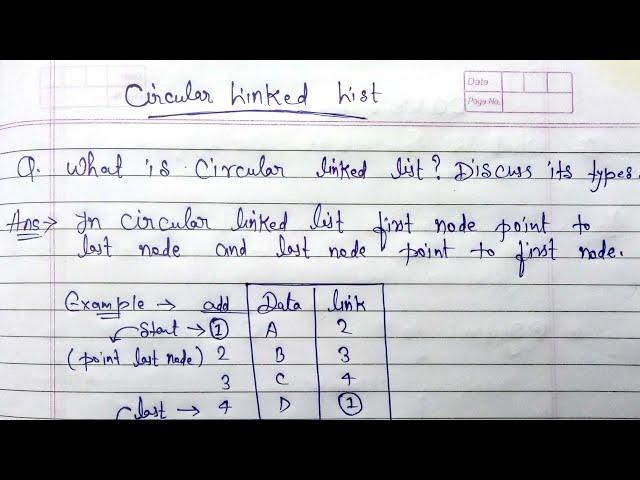 Date
Page No.
Circular Linked List
Q. What is Circular linked list? Discuss its types.
Ans → In circular linked list first node point to
last node and last node point to first node.
Example → add Data link
Start → 1 A 2
(point last node) 2 B 3
3 C 4
last → 4 D 1